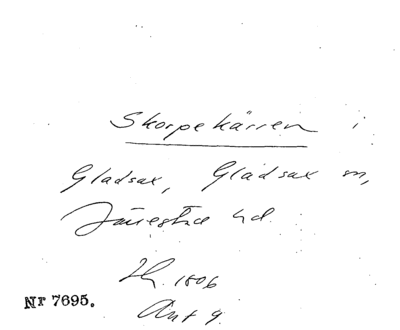 Skorpekärren i
Gladsax, Gladsax sn,
Järrestads hd.
Lh. 1806
Akt 9.
Nr 7695.